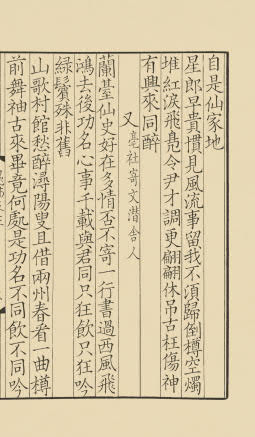 自是仙家地
星郎早貴慣見風流事留我不須歸倒樽空燭
堆紅淚飛鳧令尹才調更翩翩休吊古枉傷神
有興來同醉
又 亳社寄文潛舍人
蘭臺仙史好在多情否不寄一行書過西風飛
鴻去後功名心事千載與君同只狂飲只狂吟
綠鬢殊非舊
山歌村館愁醉潯陽叟且借兩州春看一曲樽
前舞袖古來畢竟何處是功名不同飲不同吟